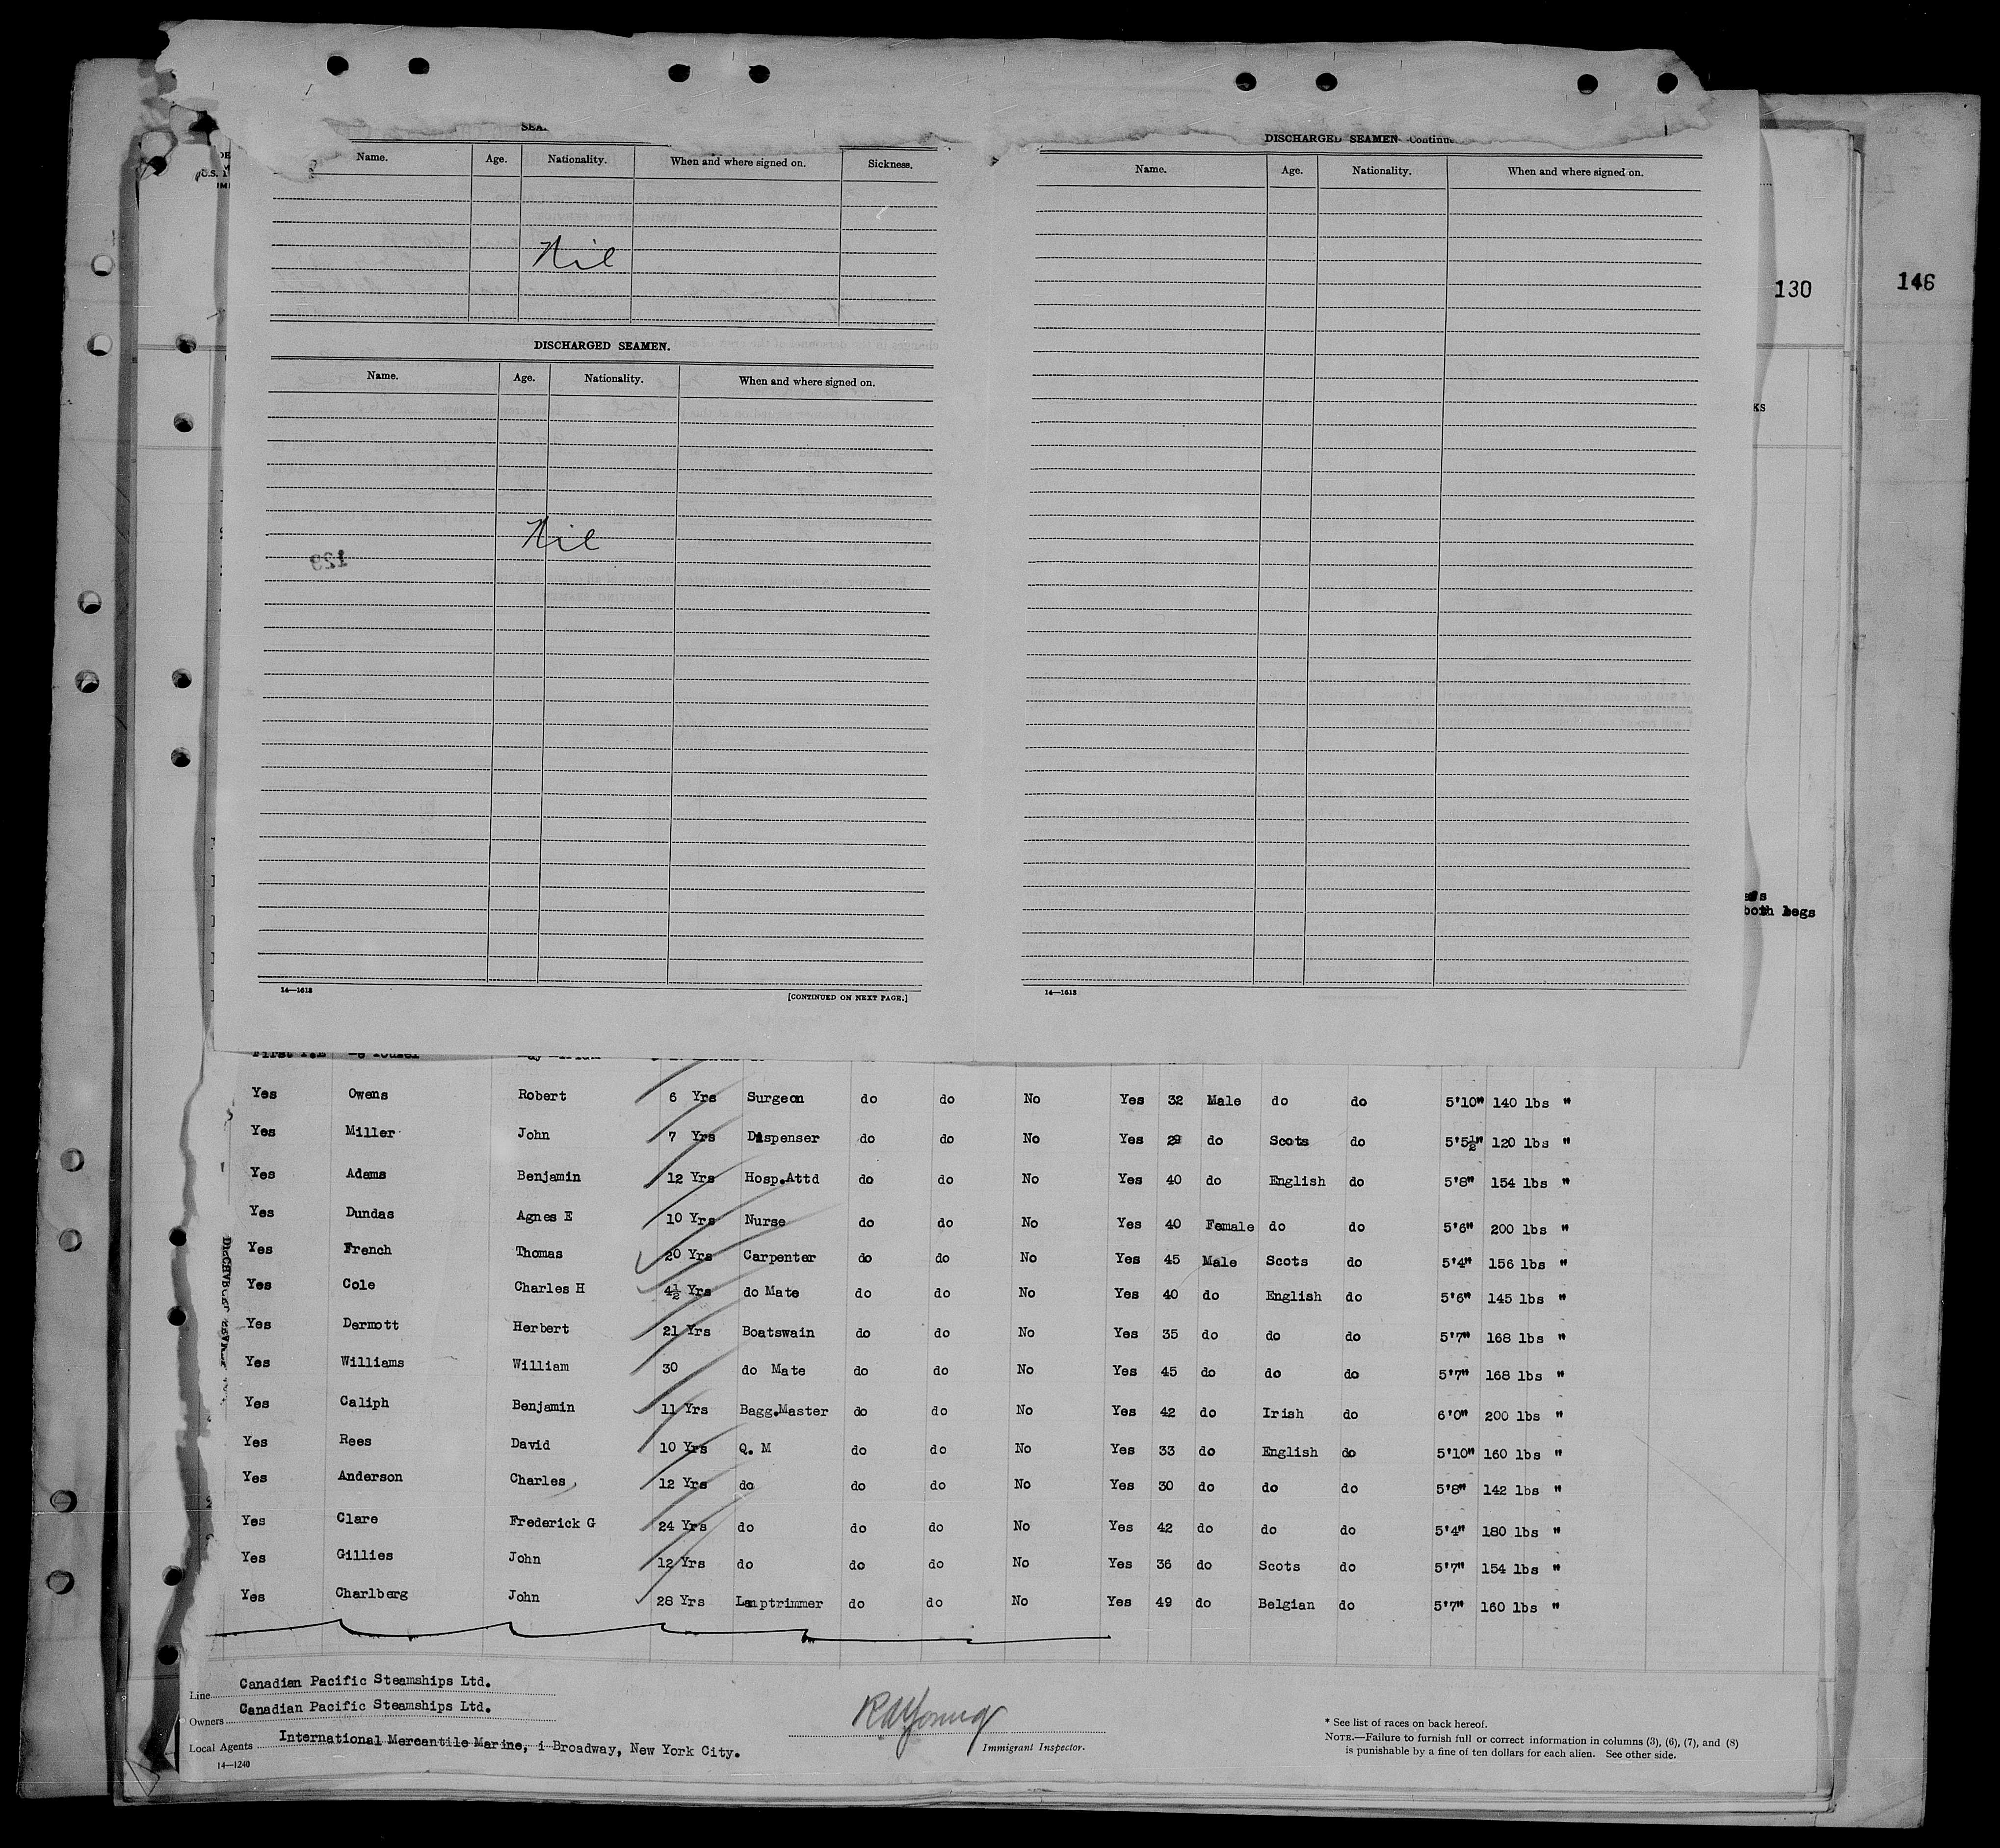 DISCHARGED SEAMEN Continue
Name. Age. Nationality. When and where signed on. Sickness.
Nil
DISCHARGED SEAMEN.
Name. Age. Nationality. When and where signed on.
Nil
129
14—1613 [CONTINUED ON NEXT PAGE.]
Name. Age. Nationality. When and where signed on.
14—1613
130
146
both legs
Yes Owens Robert 6 Yrs Surgeon do do No Yes 32 Male do do 5'10" 140 lbs "
Yes Miller John 7 Yrs Dispenser do do No Yes 29 do Scots do 5'5½" 120 lbs "
Yes Adams Benjamin 12 Yrs Hosp.Attd do do No Yes 40 do English do 5'8" 154 lbs "
Yes Dundas Agnes E 10 Yrs Nurse do do No Yes 40 Female do do 5'6" 200 lbs "
Yes French Thomas 20 Yrs Carpenter do do No Yes 45 Male Scots do 5'4" 156 lbs "
Yes Cole Charles H 4½ Yrs do Mate do do No Yes 40 do English do 5'6" 145 lbs "
Yes Dermott Herbert 21 Yrs Boatswain do do No Yes 35 do do do 5'7" 168 lbs "
Yes Williams William 30 do Mate do do No Yes 45 do do do 5'7" 168 lbs "
Yes Caliph Benjamin 11 Yrs Bagg.Master do do No Yes 42 do Irish do 6'0" 200 lbs "
Yes Rees David 10 Yrs Q. M do do No Yes 33 do English do 5'10" 160 lbs "
Yes Anderson Charles 12 Yrs do do do No Yes 30 do do do 5'8" 142 lbs "
Yes Clare Frederick G 24 Yrs do do do No Yes 42 do do do 5'4" 180 lbs "
Yes Gillies John 12 Yrs do do do No Yes 36 do Scots do 5'7" 154 lbs "
Yes Charlberg John 28 Yrs Lamptrimmer do do No Yes 49 do Belgian do 5'7" 160 lbs "
Line Canadian Pacific Steamships Ltd.
Owners Canadian Pacific Steamships Ltd.
Local Agents International Mercantile Marine, 1 Broadway, New York City.
14—1240
RA Young
Immigrant Inspector.
* See list of races on back hereof.
NOTE.—Failure to furnish full or correct information in columns (3), (6), (7), and (8)
is punishable by a fine of ten dollars for each alien. See other side.